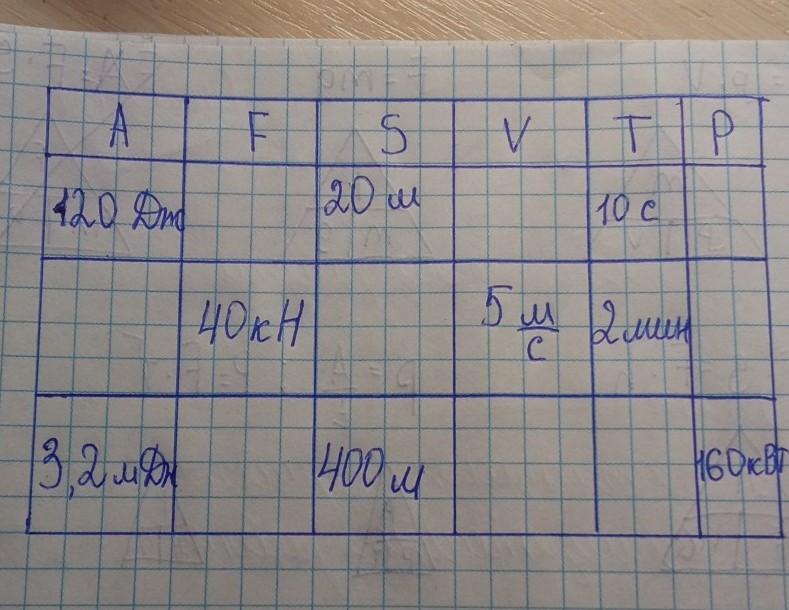 A F S V T P
120 Дж 20 м 10 с
40 кН 5 м/с 2 мин
3,2 мДж 400 м 160 кВт